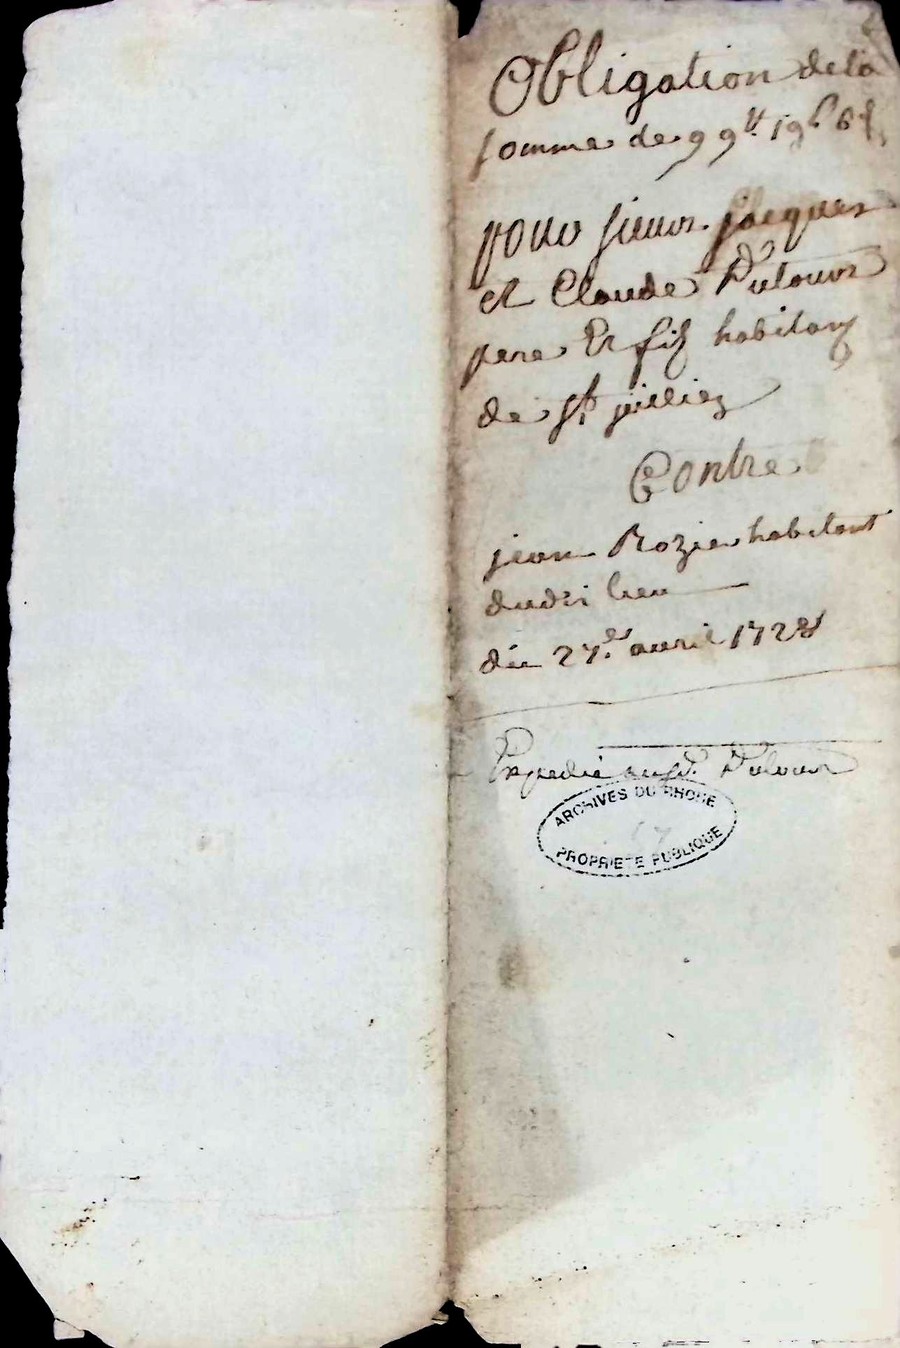 Obligation de la
somme de 99ᵗᵗ 19ˢ 6ᵈ
pour sieurs Jacques
et Claude Dutour
pere Et filz habitans
de St jullien
Contre
jean Rozier habitant
dudit lieu
du 27.e avril 1728
Expedié aud. Sr. Dutour
ARCHIVES DU RHONE
17
PROPRIETE PUBLIQUE